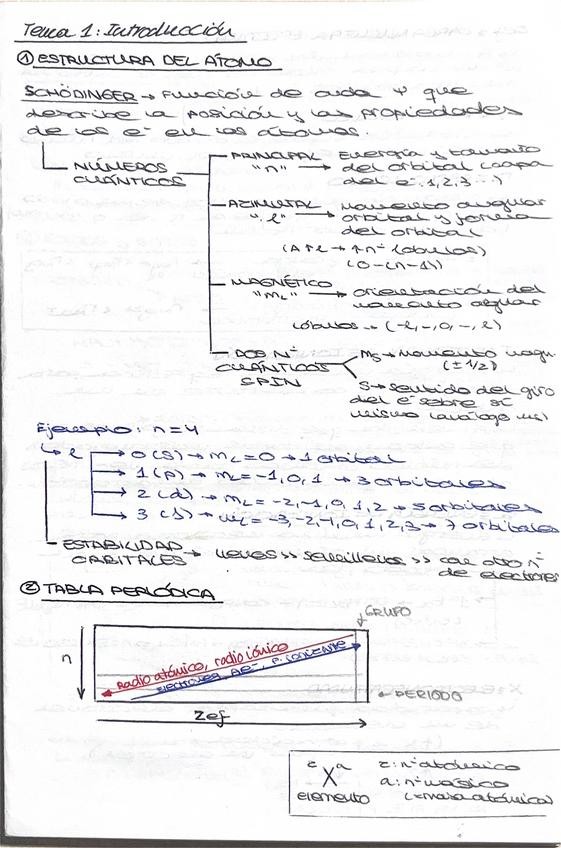 Tema 1: Introducción
① ESTRUCTURA DEL ÁTOMO
SCHÖDINGER → Función de onda Ψ que
describe la posición y las propiedades
de los e⁻ en los átomos.
NÚMEROS CUÁNTICOS
PRINCIPAL "n" → Energía y tamaño
del orbital (capa
del e⁻: 1, 2, 3 ...)
AZIMUTAL "l" → Momento angular
orbital y forma
del orbital
(A ↑ l → ↑ nº lóbulos)
(0-(n-1))
MAGNÉTICO "mL" → orientación del
momento angular
lóbulos → (-l, -, 0, -, l)
DOS Nº CUÁNTICOS SPIN
ms → Momento magn.
(± 1/2)
S → sentido del giro
del e⁻ sobre sí
mismo (análogo ms)
Ejemplo: n = 4
↳ l → 0 (s) → mL = 0 → 1 orbital
1 (p) → mL = -1, 0, 1 → 3 orbitales
2 (d) → mL = -2, -1, 0, 1, 2 → 5 orbitales
3 (f) → mL = -3, -2, -1, 0, 1, 2, 3 → 7 orbitales
ESTABILIDAD ORBITALES → llenos >> semillenos >> con otro nº
de electrones
② TABLA PERIÓDICA
GRUPO
n
Radio atómico, radio iónico
PERIODO
Zef
z X a
z: nº atómico
a: nº másico
elemento
(= masa atómica)